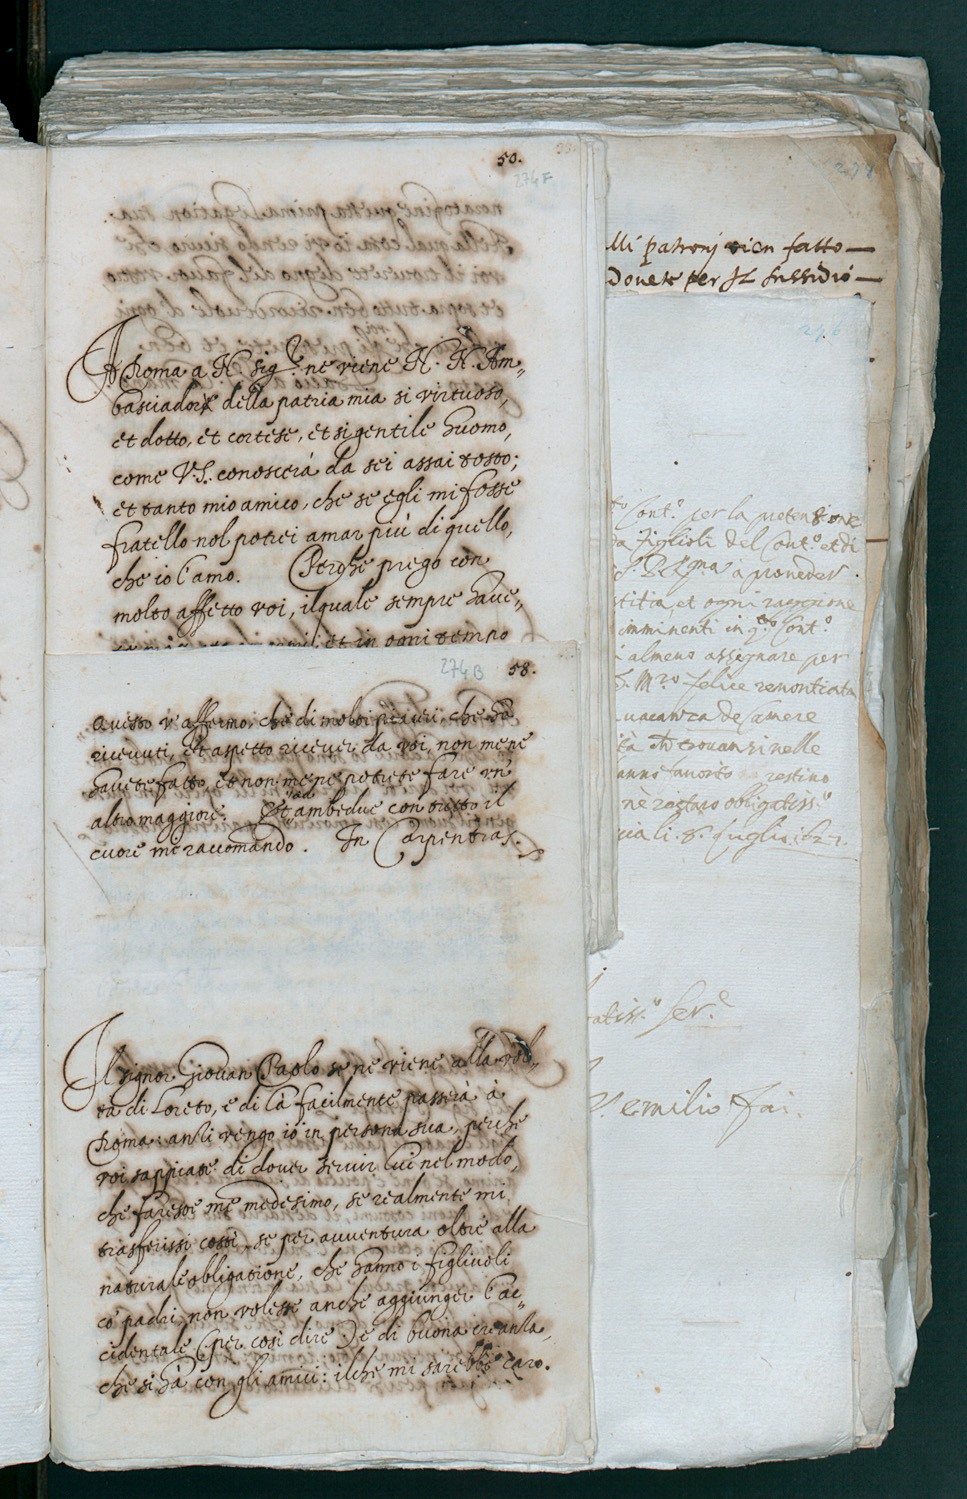 50.
274F
A Roma a N. Sig.re ne viene N. N. Am-
basciadore della patria mia si virtuoso,
et dotto, et cortese, et si gentile huomo,
come V.S. conoscerà da sei assai tosto;
et tanto mio amico, che se egli mi fosse
fratello nol potrei amar più di quello,
che io l'amo. Perche prego con
molto affetto voi, il quale sempre have-
et in ogni tempo
274B
58.
avisso v'affermo, che di molti piaceri, che hò
ricevuti, et aspetto ricever da voi, non me ne
havete fatto, et non me ne potrete fare un'
altro maggiore. Et ad ambedue con tutto il
cuore mi racomando. In Carpentras.
Il signor Giovan Paolo se ne viene alla vol-
ta di Loreto, e di là facilmente passerà à
Roma: anzi vengo io in persona sua, perche
voi sappiate di dover servir lui nel modo,
che fareste me medesimo, se realmente mi
trasferissi costì se per avventura oltre alla
naturale obligatione, che hanno i figlivoli
co' padri, non voleste anche aggiunger l'ac-
cidentale (per così dire) e di buona creanza,
che si hà con gli amici: il che mi sarebbe caro.
278
lli patroni vien fatto
Dovete per Il sussidio
276
Cont.o per la pretensione
figlioli del Cont.o et di
à proveder
stitia, et ogni raggione
imminenti in q.to Cont.o
almeno assegnare per
M.ro felice renontiata
vacanza de Camere
trovansi nelle
favorito restino
nè restarò obligatiss.o
li. 8. luglio
Ser.e
emilio